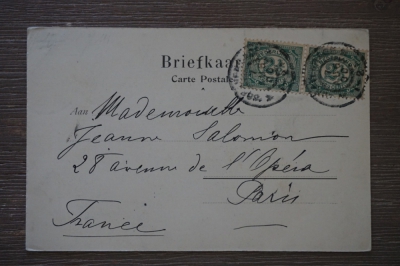 Briefkaart
Carte Postale
Aan Mademoiselle
Jeanne Salomon
28 avenue de l'Opéra
Paris
France